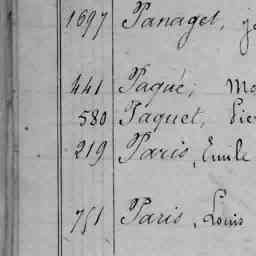 1697 Panaget, j
441 Paqué, Mo
580 Paquet, Pier
219 Paris, Emile
751 Paris, Louis